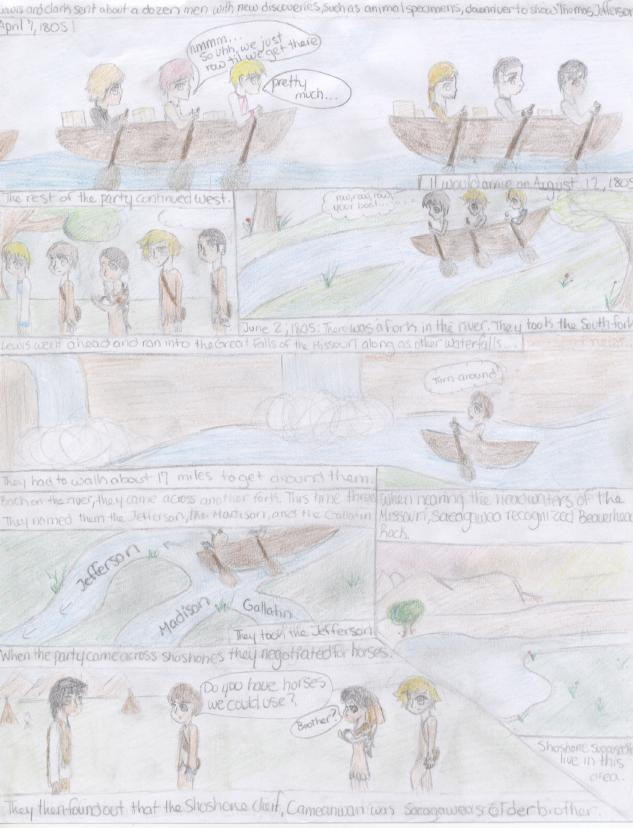 Lewis and clark sent about a dozen men with new discoveries, such as animal specimens, downriver to show Thomas Jefferson
April 7, 1805!
hmmm...
So uhh, we just
row til we get there
pretty
much...
It would arrive on August 12, 1805
The rest of the party continued west.
row, row, row,
your boat...
June 2, 1805: There was a fork in the river. They took the South fork
Lewis went ahead and ran into the Great Falls of the Missouri along as other waterfalls...
Turn around!
They had to walk about 17 miles to get around them
Back on the river, they came across another fork. This time three
They named them the Jefferson, the Madison, and the Gallatin
Jefferson
Madison
Gallatin
They took the Jefferson
When nearing the headwaters of the
Missouri, recognized Beaverhead
Rock.
When the party came across shoshones they negotiated for horses.
Do you have horses
we could use?
Brother?
Shoshone
live in this
area.
They then found out that the Shoshone was older brother.